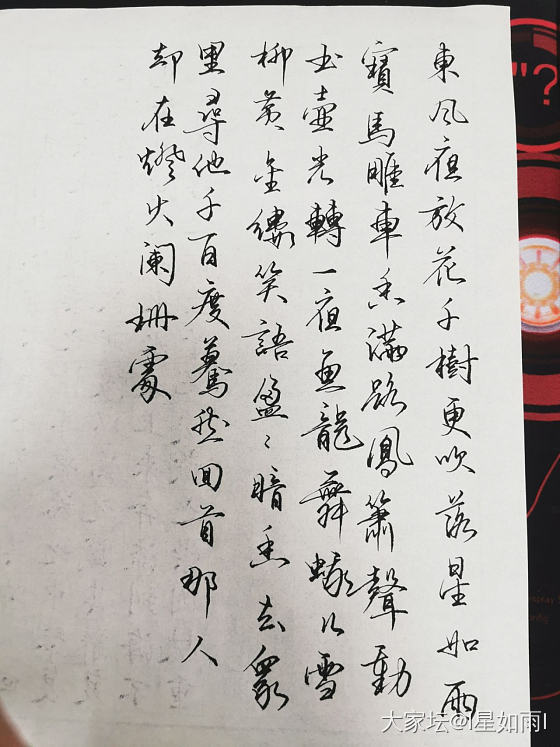 東风夜放花千樹更吹落星如雨
寶馬雕車香滿路鳳簫聲動
玉壺光轉一夜魚龍舞蛾兒雪
柳黄金縷笑語盈〻暗香去衆
里尋他千百度驀然回首那人
却在燈火阑珊處
"?
大家坛@l星如雨l